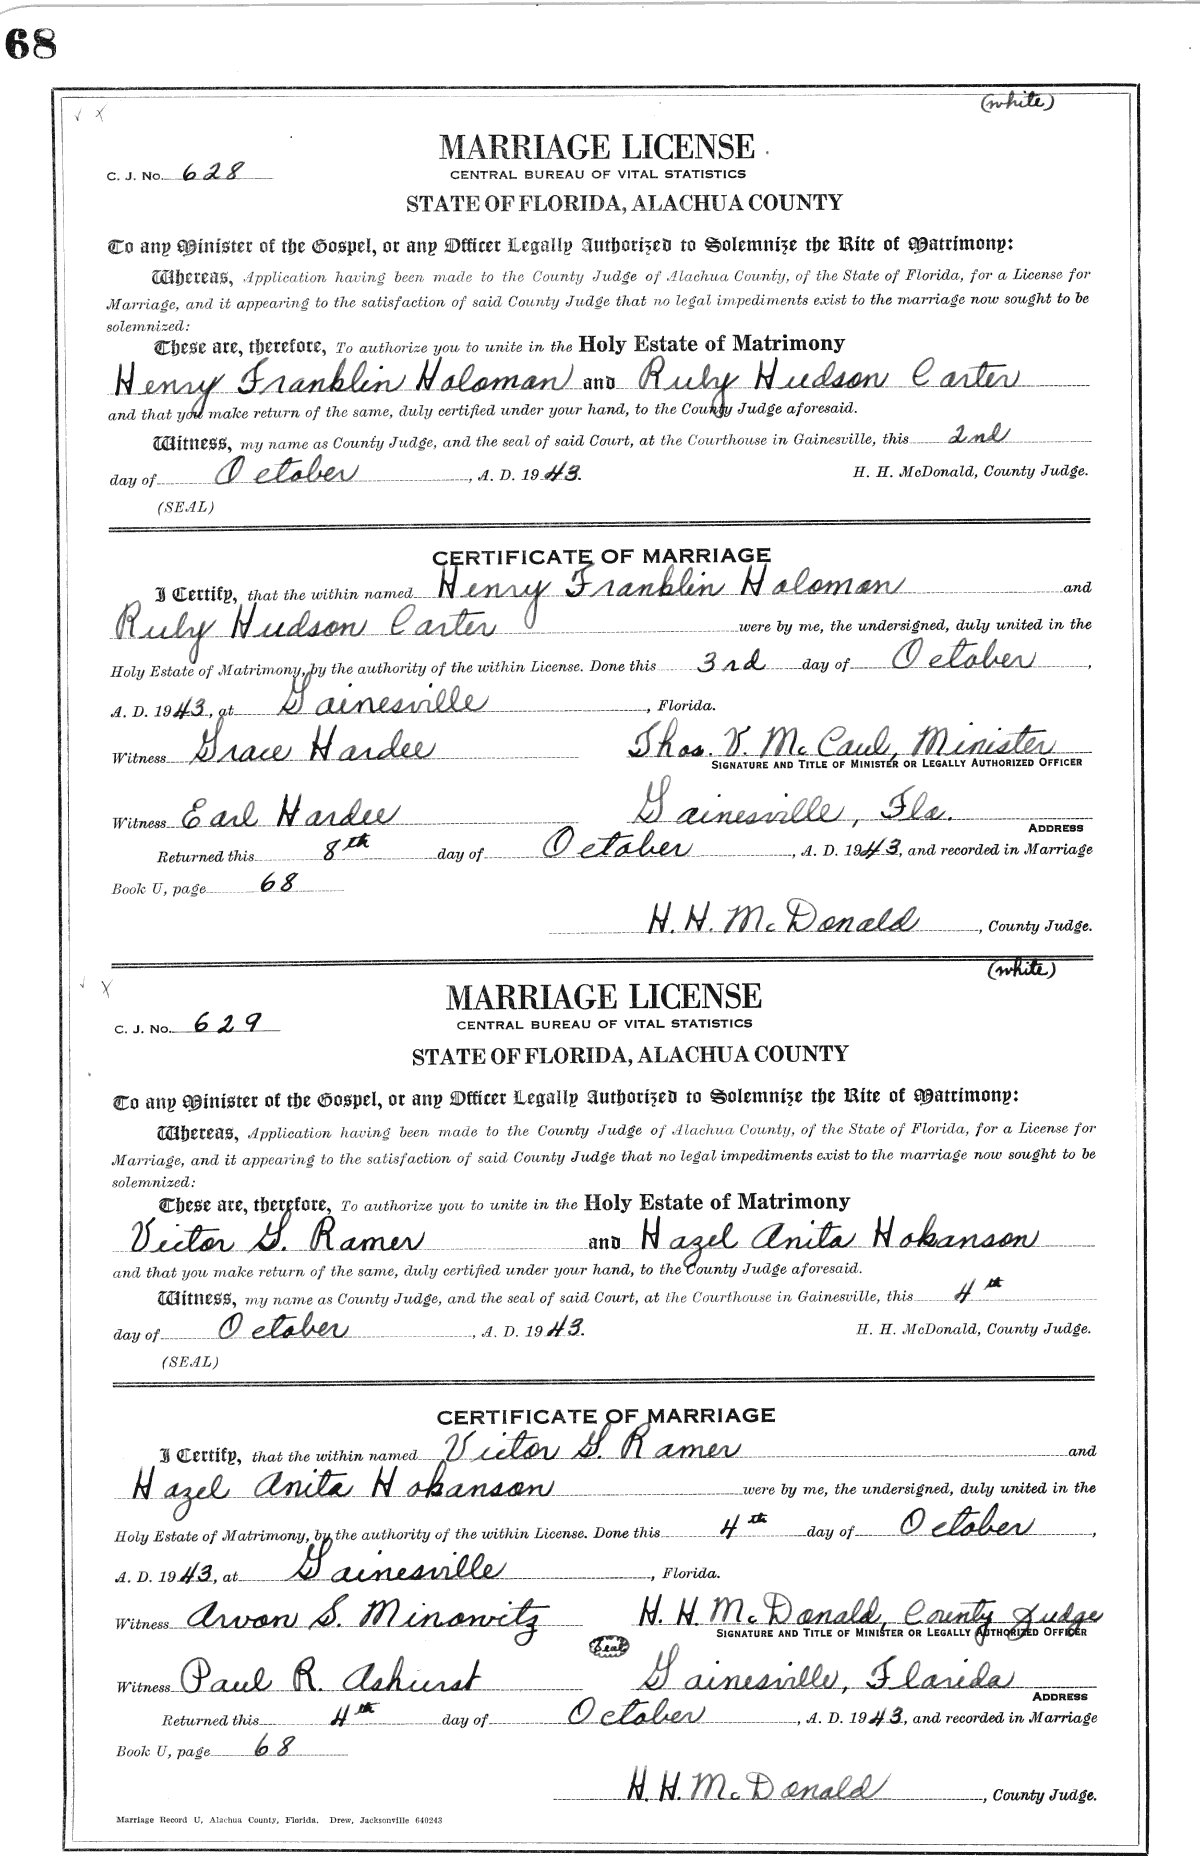 68
(white)
MARRIAGE LICENSE
C. J. No. 628
CENTRAL BUREAU OF VITAL STATISTICS
STATE OF FLORIDA, ALACHUA COUNTY
To any Minister of the Gospel, or any Officer Legally Authorized to Solemnize the Rite of Matrimony:
Whereas, Application having been made to the County Judge of Alachua County, of the State of Florida, for a License for
Marriage, and it appearing to the satisfaction of said County Judge that no legal impediments exist to the marriage now sought to be
solemnized:
These are, therefore, To authorize you to unite in the Holy Estate of Matrimony
Henry Franklin Holoman and Ruby Hudson Carter
and that you make return of the same, duly certified under your hand, to the County Judge aforesaid.
Witness, my name as County Judge, and the seal of said Court, at the Courthouse in Gainesville, this 2nd
day of October, A. D. 1943. H. H. McDonald, County Judge.
(SEAL)
CERTIFICATE OF MARRIAGE
I Certify, that the within named Henry Franklin Holoman and
Ruby Hudson Carter were by me, the undersigned, duly united in the
Holy Estate of Matrimony, by the authority of the within License. Done this 3rd day of October,
A. D. 1943, at Gainesville, Florida.
Witness Grace Hardee Thos. V. McCaul, Minister
SIGNATURE AND TITLE OF MINISTER OR LEGALLY AUTHORIZED OFFICER
Witness Earl Hardee Gainesville, Fla.
ADDRESS
Returned this 8th day of October, A. D. 1943, and recorded in Marriage
Book U, page 68
H. H. McDonald, County Judge.
(white)
MARRIAGE LICENSE
C. J. No. 629
CENTRAL BUREAU OF VITAL STATISTICS
STATE OF FLORIDA, ALACHUA COUNTY
To any Minister of the Gospel, or any Officer Legally Authorized to Solemnize the Rite of Matrimony:
Whereas, Application having been made to the County Judge of Alachua County, of the State of Florida, for a License for
Marriage, and it appearing to the satisfaction of said County Judge that no legal impediments exist to the marriage now sought to be
solemnized:
These are, therefore, To authorize you to unite in the Holy Estate of Matrimony
Victor G. Ramer and Hazel Anita Hokanson
and that you make return of the same, duly certified under your hand, to the County Judge aforesaid.
Witness, my name as County Judge, and the seal of said Court, at the Courthouse in Gainesville, this 4th
day of October, A. D. 1943. H. H. McDonald, County Judge.
(SEAL)
CERTIFICATE OF MARRIAGE
I Certify, that the within named Victor G. Ramer and
Hazel Anita Hokanson were by me, the undersigned, duly united in the
Holy Estate of Matrimony, by the authority of the within License. Done this 4th day of October,
A. D. 1943, at Gainesville, Florida.
Witness Arvon S. Minowitz H. H. McDonald, County Judge
SIGNATURE AND TITLE OF MINISTER OR LEGALLY AUTHORIZED OFFICER
Seal
Witness Paul R. Ashurst Gainesville, Florida
ADDRESS
Returned this 4th day of October, A. D. 1943, and recorded in Marriage
Book U, page 68
H. H. McDonald, County Judge.
Marriage Record U, Alachua County, Florida. Drew, Jacksonville 640243